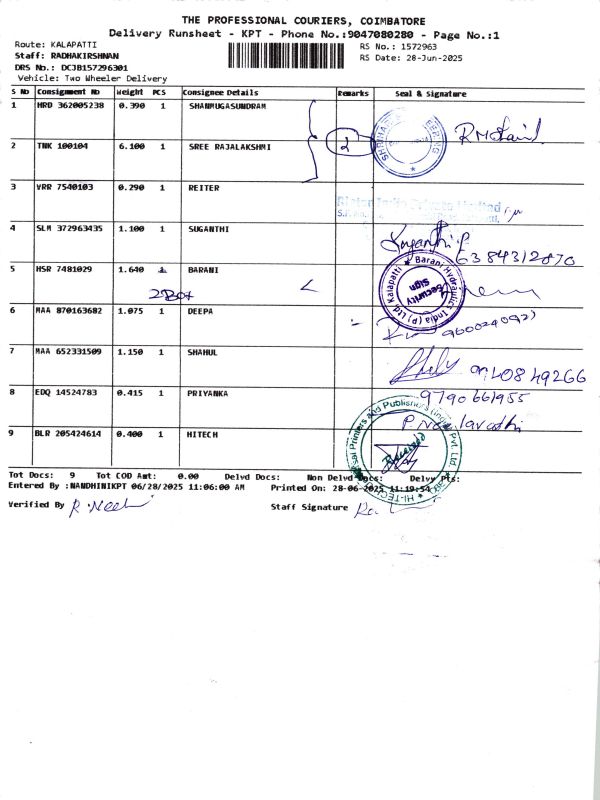 THE PROFESSIONAL COURIERS, COIMBATORE
Delivery Runsheet - KPT - Phone No.:9047080280 - Page No.:1
Route: KALAPATTI
RS No.: 1572963
Staff: RADHAKIRSHNAN
RS Date: 28-Jun-2025
DRS No.: DCJB157296301
Vehicle: Two Wheeler Delivery
S No Consignment No Weight PCS Consignee Details Remarks Seal & Signature
1 HRD 362005238 0.390 1 SHANMUGASUNDRAM
2 TNK 100104 6.100 1 SREE RAJALAKSHMI 2
3 VRR 7540103 0.290 1 REITER
4 SLM 372963435 1.100 1 SUGANTHI Suganthi.P
6384312870
5 HSR 7481029 1.640 1 BARANI
2 Box
Kalapatti ★ Barani Hydraulics India (P) Ltd
Security Sign
6 MAA 870163682 1.075 1 DEEPA
7 MAA 652331509 1.150 1 SHAHUL
8 EDQ 14524783 0.415 1 PRIYANKA 9790661955
9 BLR 205424614 0.400 1 HITECH
Printers and Publishers (India) Pvt. Ltd.
Tot Docs: 9 Tot COD Amt: 0.00 Delvd Docs: Non Delvd Docs: Delvy Pts:
Entered By :NANDHINIKPT 06/28/2025 11:06:00 AM Printed On: 28-06-2025 11:19:54
Verified By
Staff Signature